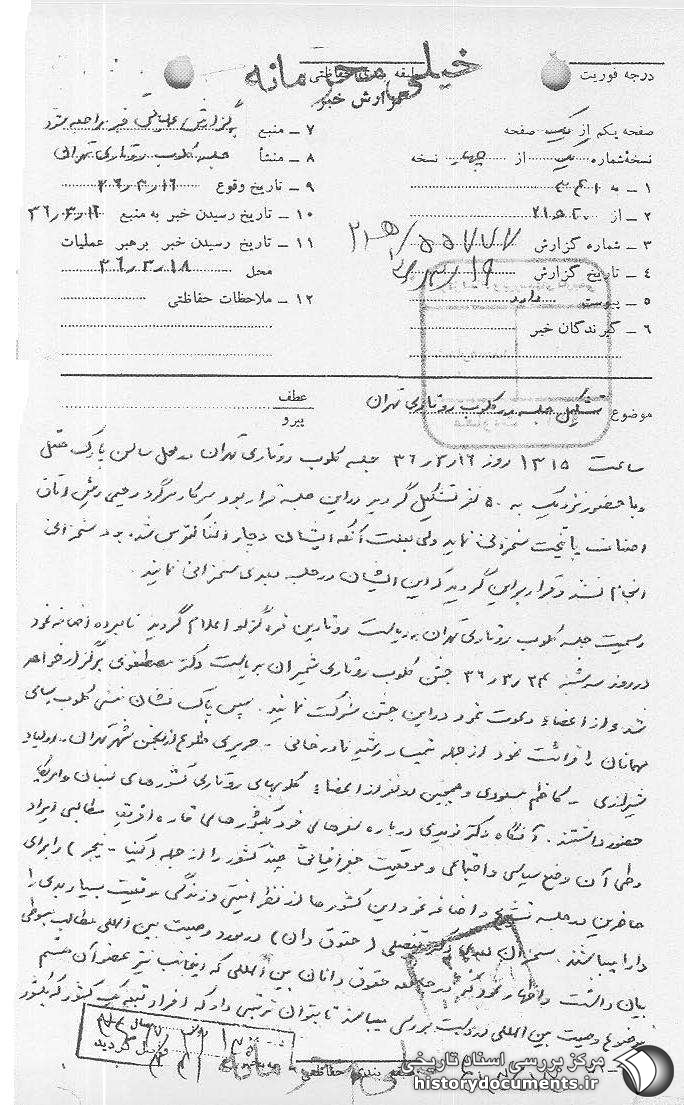 خیلی محرمانه
درجه فوریت
طبقه بندی حفاظتی
گزارش خبر
صفحه یکم از یک صفحه
نسخهٔ شماره یک از چهار نسخه
۱ ـ به
۲ ـ از ۲۰ ه ۲۱
۳ ـ شماره گزارش
۴ ـ تاریخ گزارش
۵ ـ پیوست دارد
۶ ـ گیرندگان خبر
۷ ـ منبع
۸ ـ منشأ جلسه کلوب روتاری تهران
۹ ـ تاریخ وقوع ۳۶٫۳٫۱۶
۱۰ ـ تاریخ رسیدن خبر به منبع ۳۶٫۳٫۱۶
۱۱ ـ تاریخ رسیدن خبر برهبر عملیات
محل ۳۶٫۳٫۱۸
۱۲ ـ ملاحظات حفاظتی
موضوع تشکیل جلسه در کلوب روتاری تهران
عطف
پیرو
ساعت ۱۳۱۵ روز ۳۶٫۳٫۱۶ جلسه کلوب روتاری تهران در محل سالن پارک هتل
و با حضور نزدیک به ۵۰ نفر تشکیل گردید در این جلسه قرار بود سرکار سرگرد رحیمی رئیس اتاق
اصناف پایتخت سخنرانی نماید ولی بعلت آنکه ایشان دچار آنفلوآنزا شده بود سخنرانی
انجام نشد و قرار بر این گردید که ایشان در جلسه بعدی سخنرانی نمایند.
رسمیت جلسه کلوب روتاری تهران به ریاست روتارین قره گزلو اعلام گردید نامبرده اضافه نمود
در روز سه شنبه ۳۶٫۳٫۲۴ جشن کلوب روتاری شمیران بریاست دکتر مصطفوی برگزار خواهد
شد و از اعضاء دعوت نمود در این جشن شرکت نمایند. سپس پاک نشان منشی کلوب اسامی
مهمانان را قرائت نمود از جمله تیمسار رشید نادرخانی - حریری طلوع از انجمن شهر تهران -
شیرازی - کاظم مسعودی و همچنین دو نفر از اعضاء کلوبهای روتاری کشورهای لبنان و امریکا
حضور داشتند. آنگاه دکتر نویدی درباره سفرهای خود بکشورهای قاره افریقا مطالبی ایراد
و طی آن وضع سیاسی و اجتماعی و موقعیت جغرافیائی چند کشور را از جمله (کنیا - نیجر) را برای
حاضرین در جلسه تشریح و اضافه نمود این کشورها از نظر امنیتی و زندگی موقعیت بسیار بدی را
دارا میباشند. سخنران بعدی دکتر تفضلی (حقوق دان) در مورد وصیت بین المللی مطالب مبسوطی
بیان داشت و اظهار نمود که در جامعه حقوق دانان بین المللی که اینجانب نیز عضو آن هستم
موضوع وصیت بین المللی در دست بررسی میباشد تا بتوان ترتیبی داد که افراد تبعه یک کشور که بکشور
طبقه بندی حفاظتی
خیلی محرمانه
مرکز بررسی اسناد تاریخی
historydocuments.ir